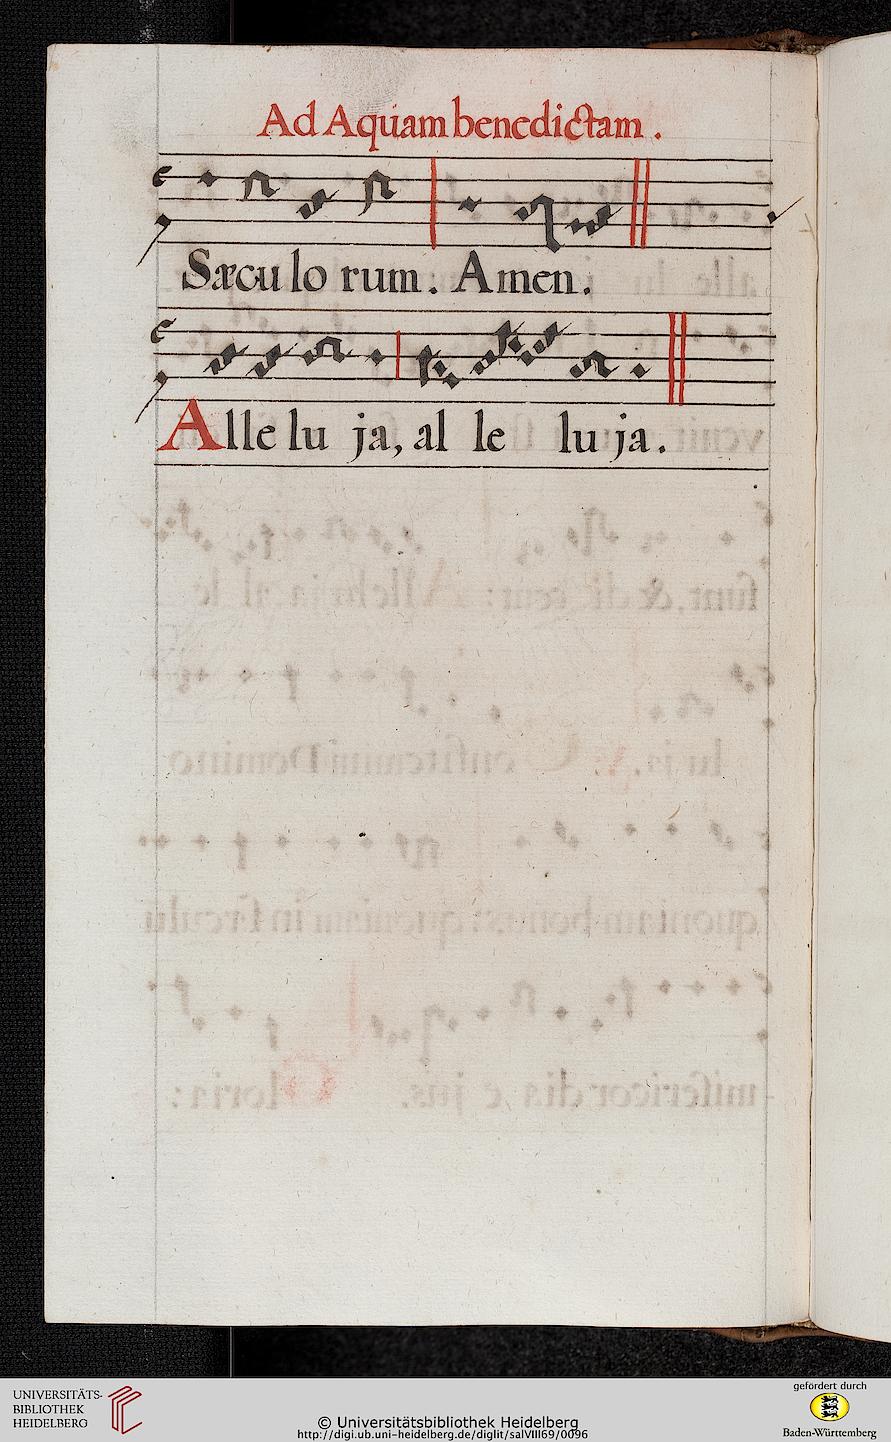 Ad Aquam benedictam.
Sæcu lo rum. Amen.
Alle lu ja, al le lu ja.
UNIVERSITÄTS-
BIBLIOTHEK
HEIDELBERG
© Universitätsbibliothek Heidelberg
http://digi.ub.uni-heidelberg.de/diglit/salVIII69/0096
gefördert durch
Baden-Württemberg